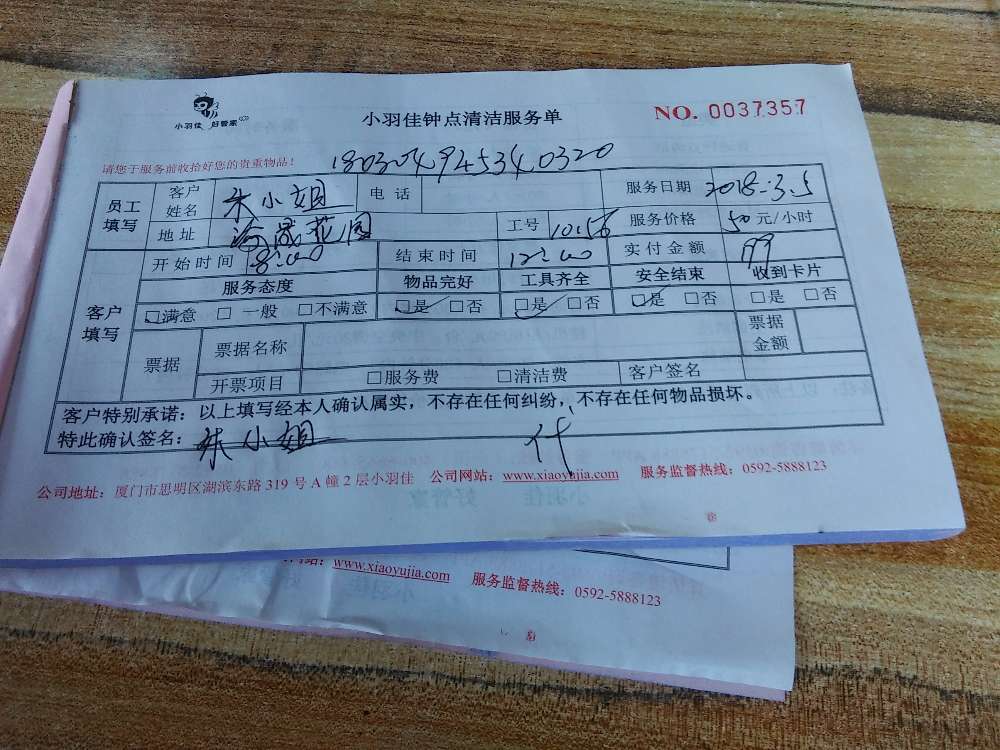 小羽佳 好管家
小羽佳钟点清洁服务单
NO. 0037357
请您于服务前收拾好您的贵重物品！
180304945340320
员工填写 客户姓名 朱小姐 电话 服务日期 2018.3.5
地址 花园 工号 1056 服务价格 50元/小时
客户填写 开始时间 8:00 结束时间 12:00 实付金额 99
服务态度 物品完好 工具齐全 安全结束 收到卡片
□满意 □一般 □不满意 □是 □否 □是 □否 □是 □否 □是 □否
票据 票据名称 票据金额
开票项目 □服务费 □清洁费 客户签名
客户特别承诺：以上填写经本人确认属实，不存在任何纠纷，不存在任何物品损坏。
特此确认签名：朱小姐 代
公司地址：厦门市思明区湖滨东路319号A幢2层小羽佳 公司网站：www.xiaoyujia.com 服务监督热线：0592-5888123
www.xiaoyujia.com 服务监督热线：0592-5888123